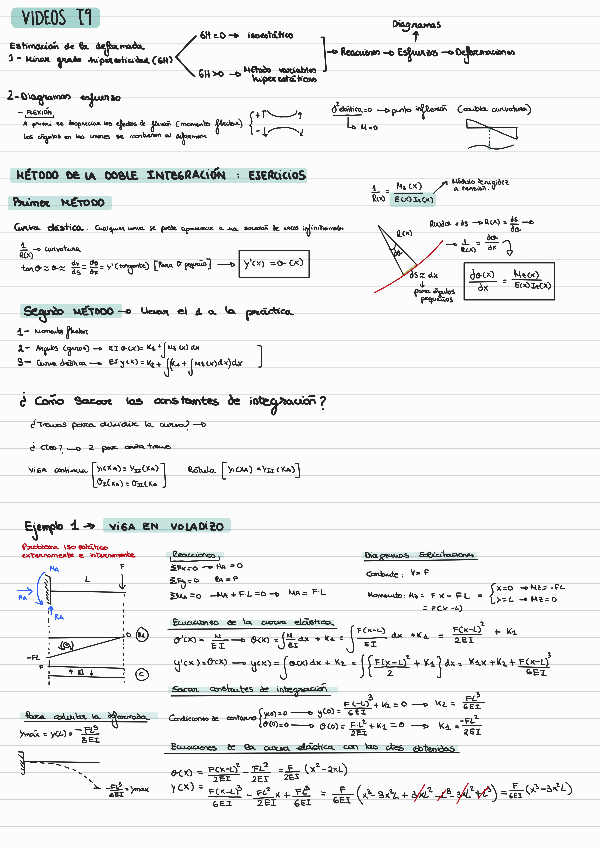 VIDEOS T9
Estimación de la deformada
1- Mirar grado hiperestaticidad (GH)
GH=0 → isostático
GH>0 → Método variables hiperestáticos
→ Reacciones → Esfuerzos → Deformaciones
Diagramas
2-Diagramas esfuerzo
- FLEXIÓN
A priori se desprecian los efectos de flexión (momento flector)
Los ángulos en las uniones se mantienen al deformarse
+
-
elástica=0 → punto inflexión (cambia curvatura)
M=0
MÉTODO DE LA DOBLE INTEGRACIÓN : EJERCICIOS
Primer MÉTODO
1/R(x) = Mz(x)/E(x)Iz(x)
Módulo de rigidez a flexión.
Curva elástica. Cualquier curva se puede aproximar a una sucesión de arcos infinitesimales
1/R(x) → curvatura
tan θ ≈ θ ≈ dy/ds = dy/dx = y'(tangente) [Para θ pequeño] → y'(x) = θ(x)
R(x)
dθ
ds ≈ dx
para ángulos pequeños
R(x)dθ = ds → R(x) = ds/dθ
→ 1/R(x) = dθ/dx
dθ(x)/dx = Mz(x)/E(x)Iz(x)
Segundo MÉTODO → Llevar el 1 a la práctica
1- Momento flector
2- Ángulos (giros) → EI θ(x) = K1 + ∫Mz(x) dx
3- Curva elástica → EI y(x) = K2 + ∫(K1 + ∫Mz(x)dx)dx
¿ Cómo sacar las constantes de integración?
¿Tramos para dividir la curva? →
¿ Ctes? → 2 por cada tramo
Viga continua [yI(xA) = yII(xA)
θI(xA) = θII(xA)]
Rótula [yI(xA) = yII(xA)]
Ejemplo 1 → VIGA EN VOLADIZO
Problema isostático
externamente e internamente
MA
L
F
HA
RA
-FL
0
M
F
C
Reacciones
ΣFx=0 → HA = 0
ΣFy=0 RA = F
ΣMA=0 -MA + F·L=0 → MA = F·L
Diagramas Solicitaciones
Cortante: V = F
Momento: Mz = F·x - F·L = {x=0 → Mz=-FL
x=L → Mz=0
= F(x-L)
Ecuaciones de la curva elástica
θ'(x) = M/EI → θ(x) = ∫M/EI dx + K1 = ∫F(x-L)/EI dx + K1 = F(x-L)²/2EI + K1
y'(x) = θ(x) → y(x) = ∫θ(x) dx + K2 = ∫{∫F(x-L)²/2 + K1}dx = K1x + K2 + F(x-L)³/6EI
Sacar constantes de integración
Condiciones de contorno {y(0)=0 → y(0) = F(-L)³/6EI + K2 = 0 → K2 = FL³/6EI
θ(0)=0 → θ(0) = F·L²/2EI + K1 = 0 → K1 = -FL²/2EI
Para calcular la deformada
ymax = y(L) = -FL³/3EI
-FL³/3EI = ymax
Ecuaciones de la curva elástica con las ctes obtenidas
θ(x) = F(x-L)²/2EI - FL²/2EI = F/2EI (x² - 2xL)
y(x) = F(x-L)³/6EI - FL²/2EI x + FL³/6EI = F/6EI (x³ - 3x²L + 3xL² - L³ - 3xL² + L³) = F/6EI (x³ - 3x²L)